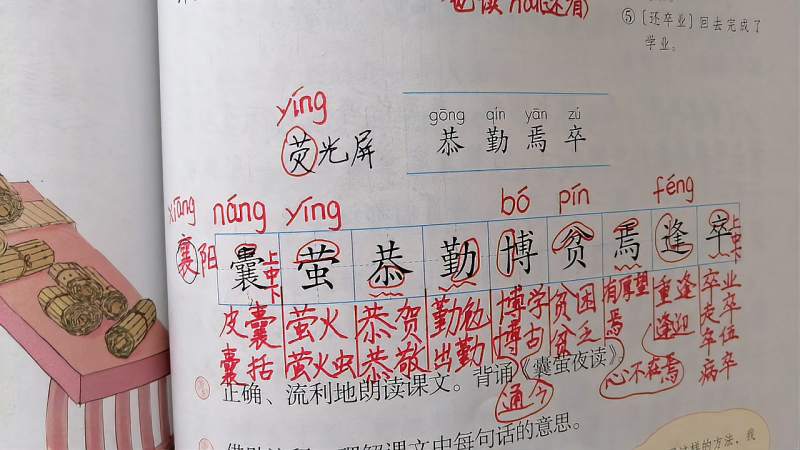 也读hái(还有)
⑤〔还卒业〕回去完成了
学业。
yíng
荧光屏
gōng qín yān zú
恭 勤 焉 卒
xiāng náng yíng bó pín féng
襄阳 囊 萤 恭 勤 博 贫 焉 逢 卒
上中下 上中下
皮囊 萤火 恭贺 勤勉 博学 贫困 有厚望焉 重逢 卒业
囊括 萤火虫 恭敬 出勤 博古通今 贫乏 心不在焉 逢迎 走卒 卒位 病卒
正确、流利地朗读课文。背诵《囊萤夜读》。
课文中每句话的意思。
样的方法,我